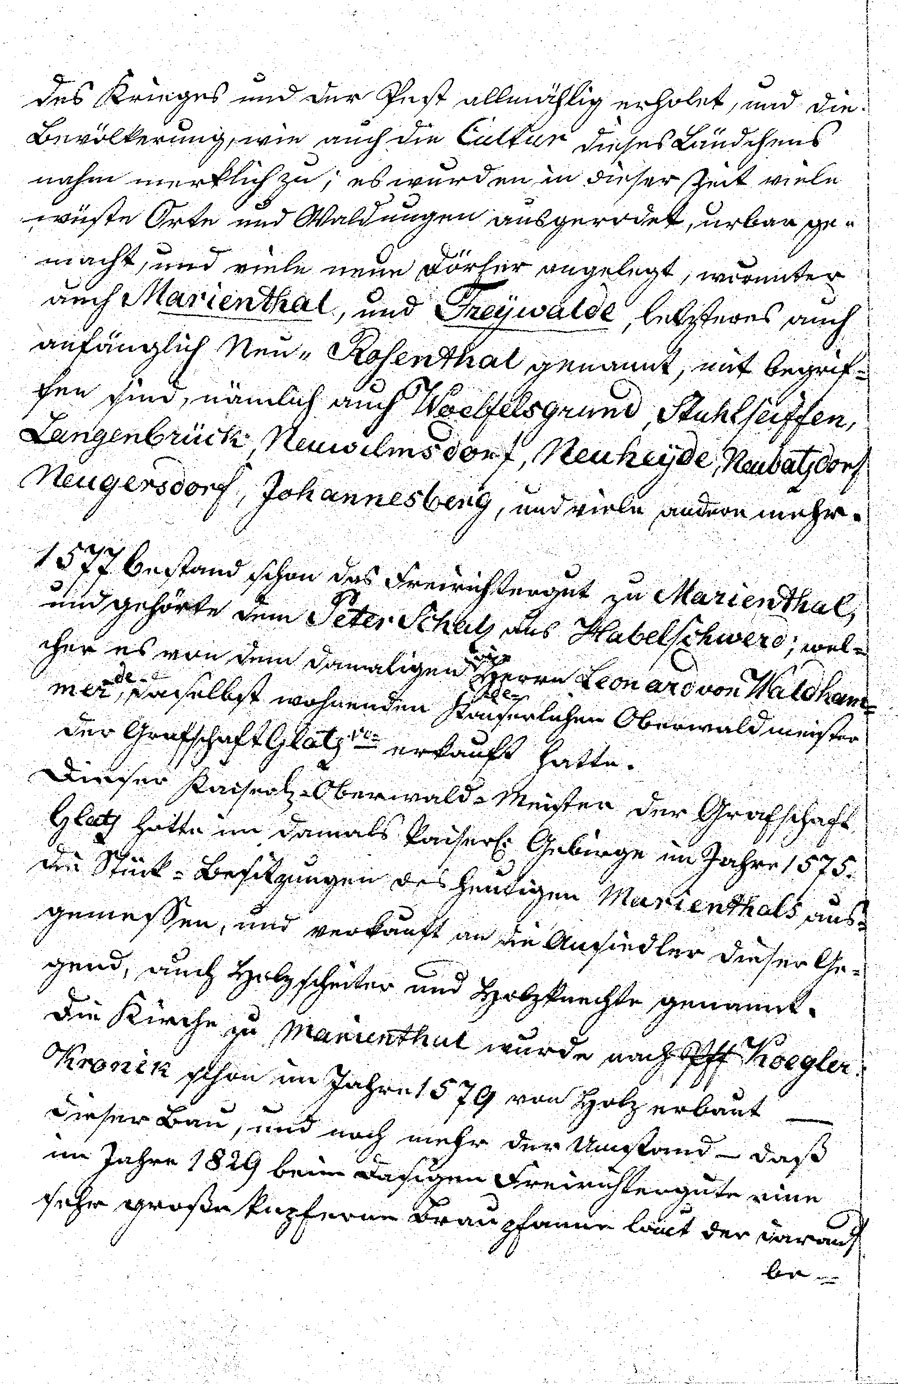 des Krieges und der Pest allmählig erholet, und die
Bevölkerung, wie auch die Cultur dieses Ländchens
nahm merklich zu; es wurden in dieser Zeit viele
wüste Orte und Waldungen ausgerodet, urbar ge-
macht, und viele neue Dörfer angelegt, worunter
auch Marienthal, und Freÿwalde, letzteres auch
anfänglich Neu- Rosenthal genannt, mit begrif-
fen sind, nämlich auch Woelfelsgrund, Stuhlseiffen,
Langenbrück, Neuwilmsdorf, Neuheÿde, Neubatzdorf
Neugersdorf, Johannesberg, und viele andere mehr.
1577 bestand schon das Freirichtergut zu Marienthal,
und gehörte dem Peter Schatz aus Habelschwerd; wel-
cher es von dem damaligen Herrn Leonard von Waldham-
mer, daselbst wohnenden Kaiserlichen Oberwaldmeister
der Grafschaft Glatz erkauft hatte.
Dieser Kaiserl. Oberwald-Meister der Grafschaft
Glatz hatte im damals kaiserl: Gebirge im Jahre 1575.
die Stück-Besitzungen des heutigen Marienthals aus-
gemessen, und verkauft an die Ansiedler dieser Ge-
gend, auch Holzscheiter und Holzknechte genannt.
Die Kirche zu Marienthal wurde nach Koegler.
Kronik schon im Jahre 1579 von Holz erbaut —
dieser Bau, und noch mehr der Umstand – daß
im Jahre 1829 beim dasigen Freirichtergute eine
sehr große kupferne Braupfanne laut der darauf
be-